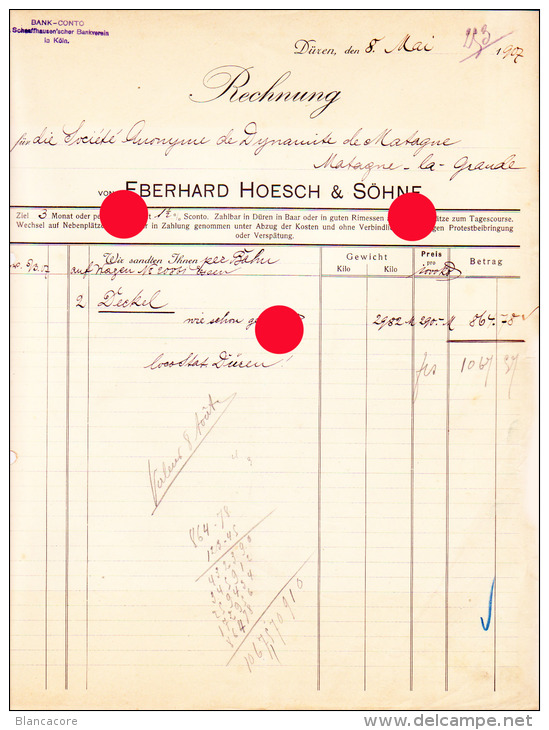 BANK-CONTO
Schaaffhausen'scher Bankverein
in Köln.
Düren, den 8. Mai 1907
Rechnung
für die Société Anonyme de Dynamite de Matagne
Matagne-la-Grande
von EBERHARD HOESCH & SÖHNE
Ziel 3 Monat oder per 1½ % Sconto. Zahlbar in Düren in Baar oder in guten Rimessen plätze zum Tagescourse.
Wechsel auf Nebenplätze in Zahlung genommen unter Abzug der Kosten und ohne Verbindlich gen Protestbeibringung
oder Verspätung.
Wir sandten Ihnen per Bahn
Gewicht Preis Betrag
Kilo Kilo pro
auf Wagen No
2 Deckel
wie schon 2982 M 290.- M 864.78
loco Stat. Düren! frs 1067 37
Valeur 8 Août
864-78
123-45
432390
345912
259434
172956
86478
1067570910
Blancacore www.delcampe.net